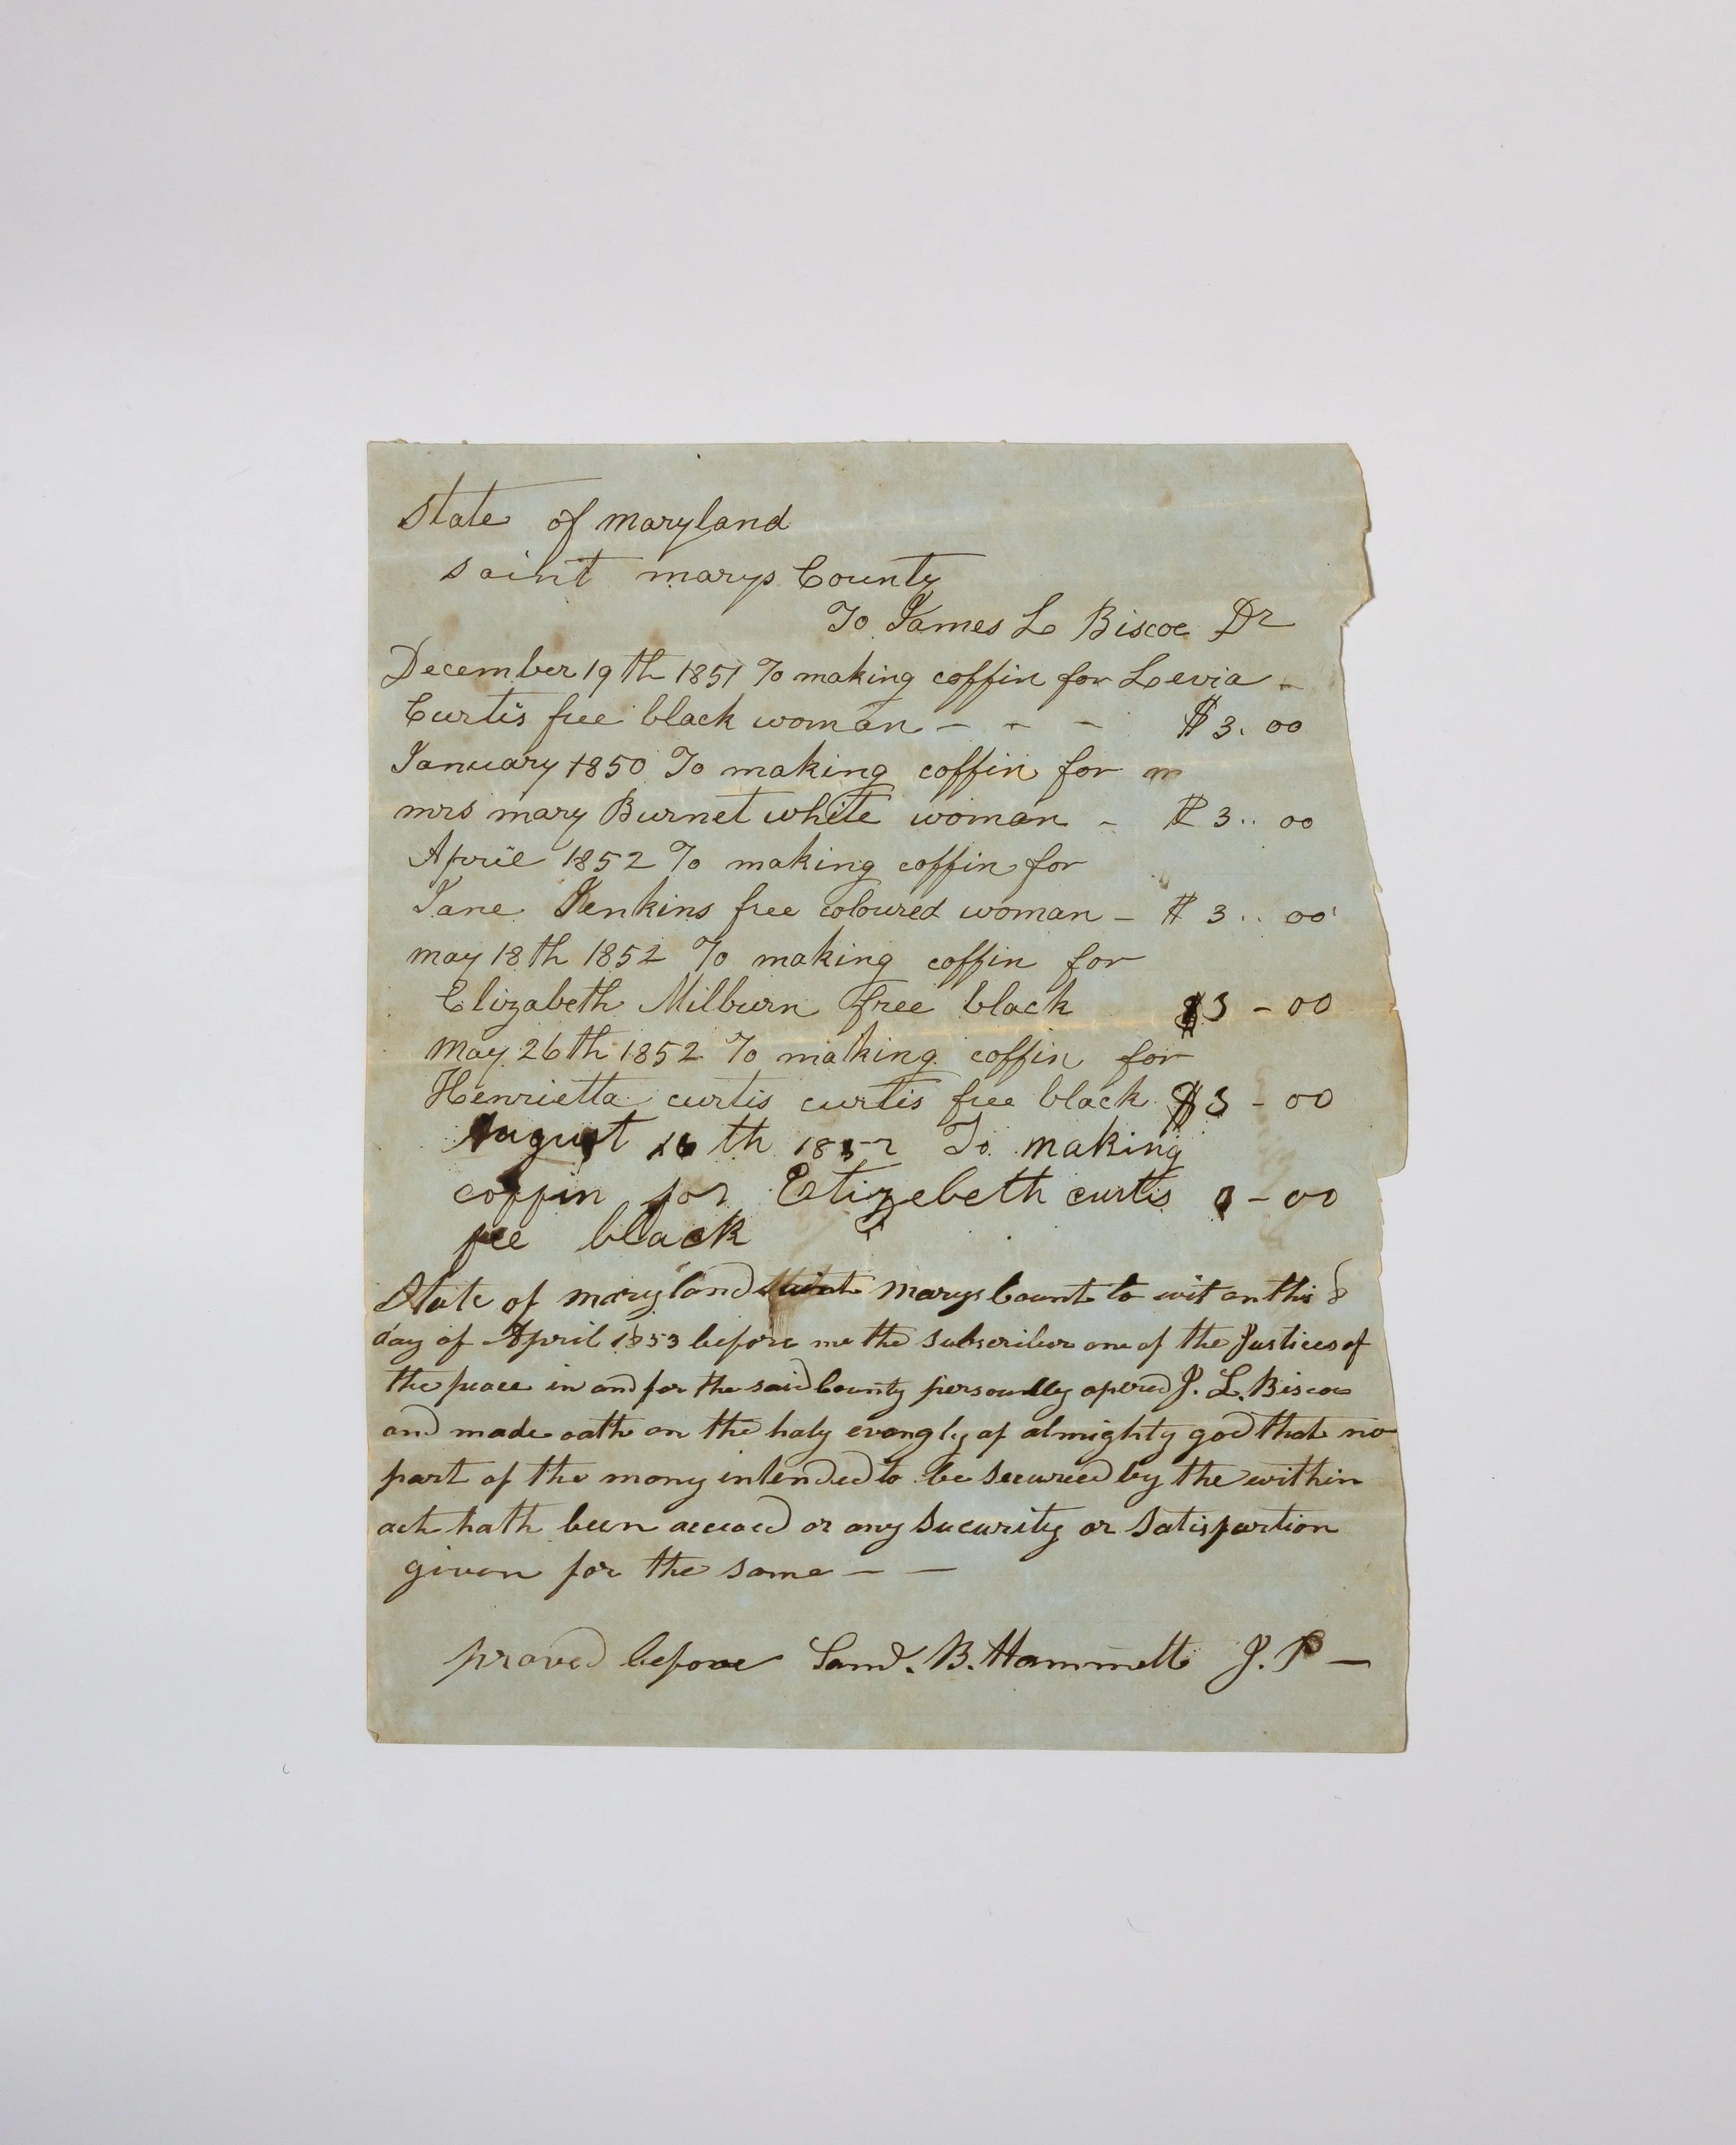 State of maryland
saint marys County
To James L Biscoe Dr
December 19th 1851 To making coffin for Levia -
Curtis free black woman - - - $3.00
January 1850 To making coffin for m
mrs mary Burnet white woman - $3..00
April 1852 To making coffin for
Jane Jenkins free coloured woman - $3..00
may 18th 1852 To making coffin for
Elizabeth Milburn free black $3-00
may 26th 1852 To making coffin for
Henrietta curtis curtis free black $3-00
August 16th 1852 To making
coffin for Elizebeth curtis -00
fee black
State of maryland marys Count to wit on this 8
day of April 1853 before me the subscriber one of the Justices of
the peace in and for the said County persoudly apered J. L. Biscoe
and made oath on the holy evangly of almighty god that no
part of the mony intended to be secured by the within
act hath been or any sucurity or satisfartion
given for the same - -
proved before Saml. B. Hammett J. P -